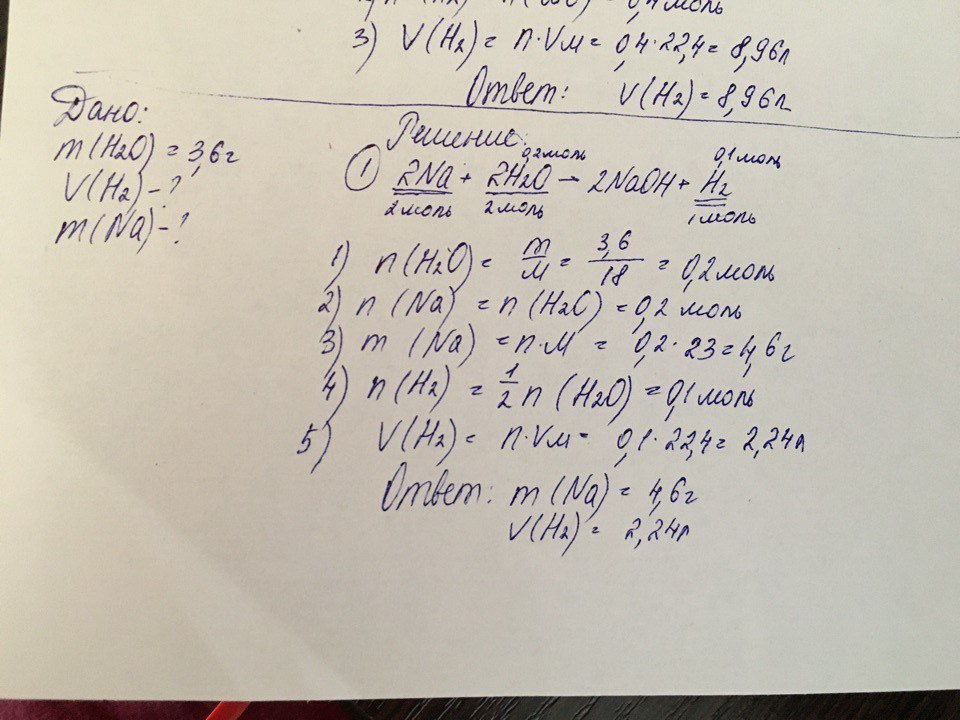 0,4 моль
3) V(H2) = n·Vм = 0,4·22,4 = 8,96л
Ответ: V(H2) = 8,96л
Дано:
m(H2O) = 3,6г
V(H2) - ?
m(Na) - ?
Решение:
0,2моль 0,1моль
① 2Na + 2H2O → 2NaOH + H2
2моль 2моль 1моль
1) n(H2O) = m/M = 3,6/18 = 0,2моль
2) n (Na) = n(H2O) = 0,2 моль
3) m (Na) = n·M = 0,2·23 = 4,6г
4) n(H2) = 1/2 n (H2O) = 0,1моль
5) V(H2) = n·Vм = 0,1·22,4 = 2,24л
Ответ: m(Na) = 4,6г
V(H2) = 2,24л